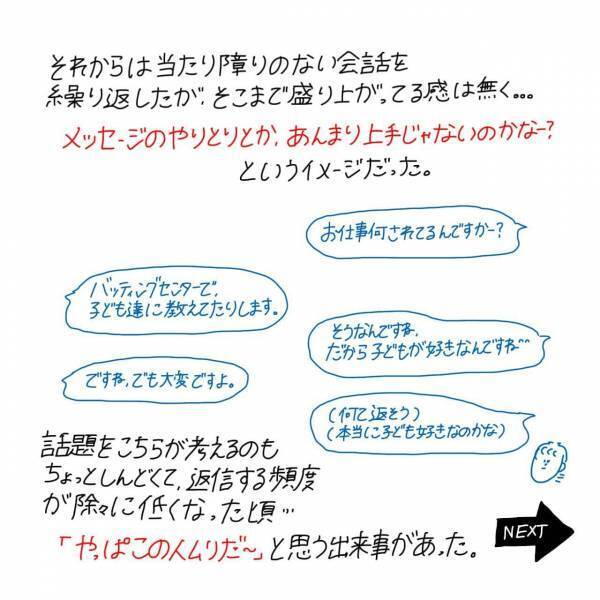 それからは当たり障りのない会話を
繰り返したが、そこまで盛り上がってる感は無く...
メッセージのやりとりとか、あんまり上手じゃないのかなー?
というイメージだった。
お仕事何されてるんですかー?
バッティングセンターで、
子ども達に教えてたりします。
そうなんですね、
だから子どもが好きなんですね^^
ですね、でも大変ですよ。
(何て返そう)
(本当に子ども好きなのかな)
話題をこちらが考えるのも
ちょっとしんどくて、返信する頻度
が除々に低くなった頃…
「やっぱこの人ムリだ〜」と思う出来事があった。
NEXT